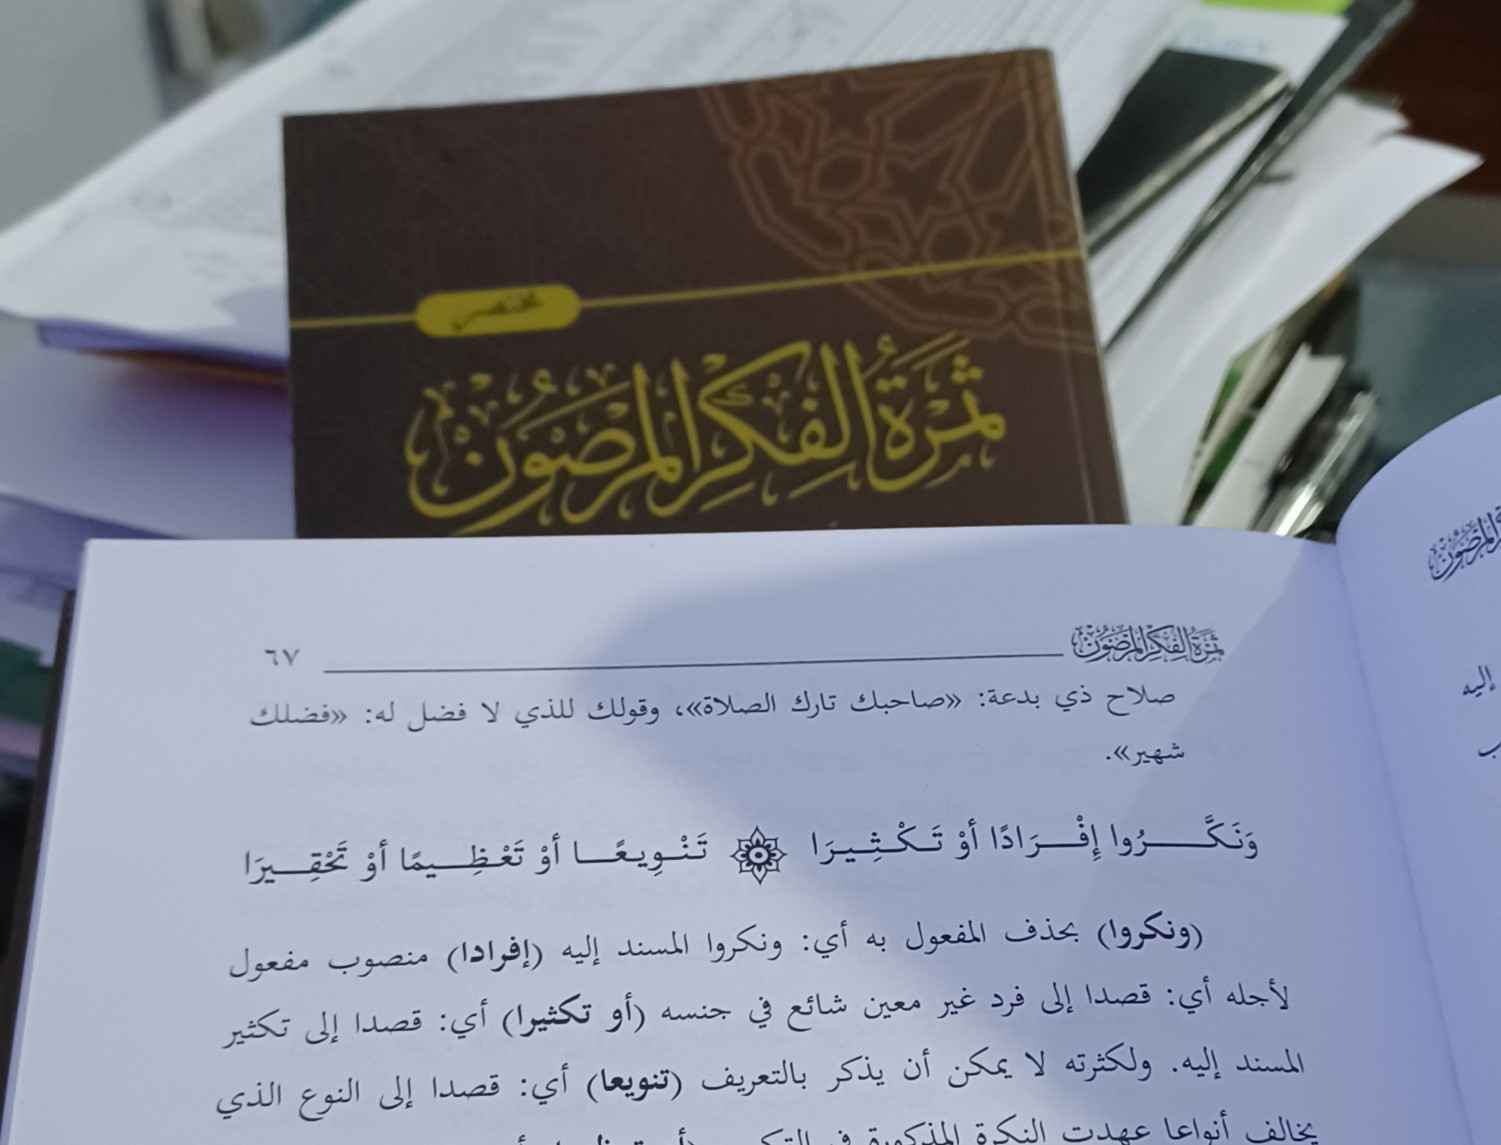 مختصر
ثَمَرَةُ الفِكْرِ المَصُونِ
ثَمَرَةُ الفِكْرِ المَصُونِ
٦٧
صلاح ذي بدعة: «صاحبك تارك الصلاة»، وقولك للذي لا فضل له: «فضلك
شهير».
وَنَكَّـرُوا إِفْـرَادًا أوْ تَكْـثِـيـرَا تَنْـوِيـعًـا أوْ تَعْـظِـيـمًا أوْ تَحْقِـيرَا
(ونكروا) بحذف المفعول به أي: ونكروا المسند إليه (إفرادا) منصوب مفعول
لأجله أي: قصدا إلى فرد غير معين شائع في جنسه (أو تكثيرا) أي: قصدا إلى تكثير
المسند إليه. ولكثرته لا يمكن أن يذكر بالتعريف (تنويعا) أي: قصدا إلى النوع الذي
يخالف أنواعا عهدت النكرة المذكورة في
إليه